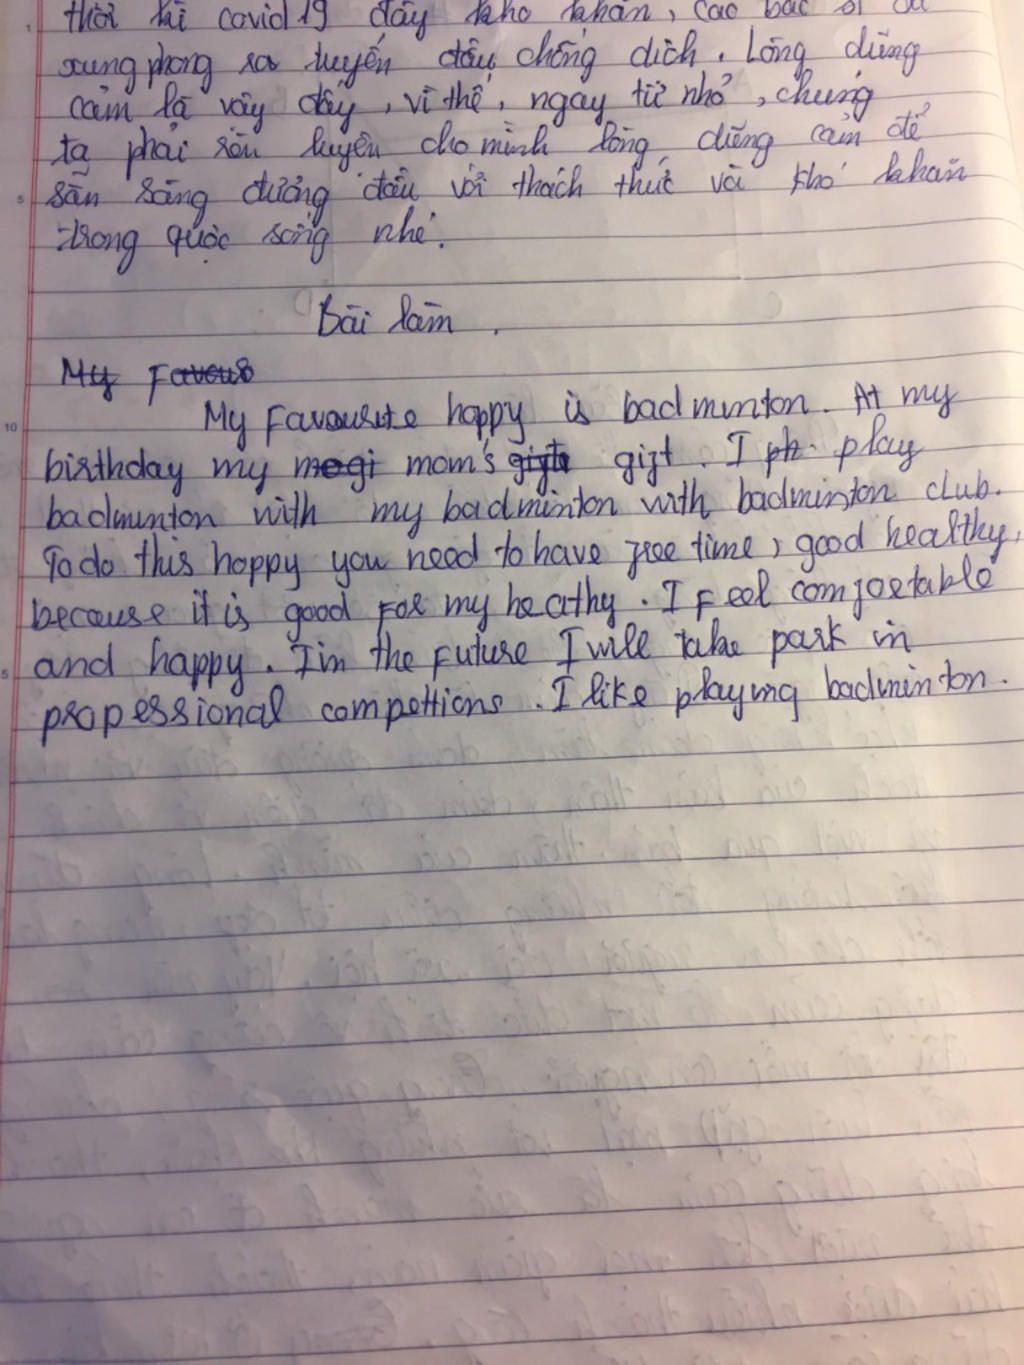 thời kì covid 19 đầy khó khăn, các bác sĩ đã
xung phong ra tuyến đầu chống dịch. Lòng dũng
cảm là vậy đấy, vì thế, ngay từ nhỏ, chúng
ta phải rèn luyện cho mình lòng dũng cảm để
sẵn sàng đương đầu với thách thức và khó khăn
trong quộc sống nhé.
Bài làm.
My Favous
My Favourite happy is badminton. At my
birthday my mom's gift. I play
badminton with my badminton with badminton club.
To do this happy you need to have free time, good healthy,
because it is good For my heathy. I Feel comfortable
and happy. Iin the Future I will take part in
propessional compettions. I like playing badminton.